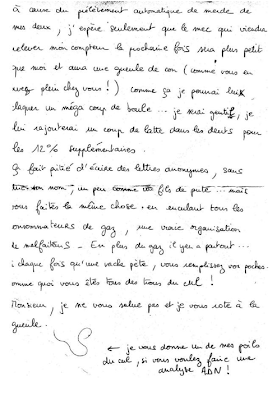 à cause du prélèvement automatique de merde de
mes deux, j'espère seulement que le mec qui viendra
relever mon compteur la prochaine fois sera plus petit
que moi et aura une gueule de con (comme vous en
avez plein chez vous !) comme ça je pourrai lui
claquer un méga coup de boule ... je serai gentil, je
lui rajouterai un coup de latte dans les dents pour
les 12% supplémentaires.
Ça fait pitié d'écrire des lettres anonymes, sans
son nom, un peu comme des fils de pute ... mais
vous faites la même chose en enculant tous les
consommateurs de gaz, une vraie organisation
de malfaiteurs - En plus du gaz il y en a partout ...
: chaque fois qu'une vache pète, vous remplissez vos poches
comme quoi vous êtes tous des trous du cul !
Monsieur, je ne vous salue pas et je vous rote à la
gueule.
← je vous donne un de mes poils
du cul, si vous voulez faire une
analyse ADN !